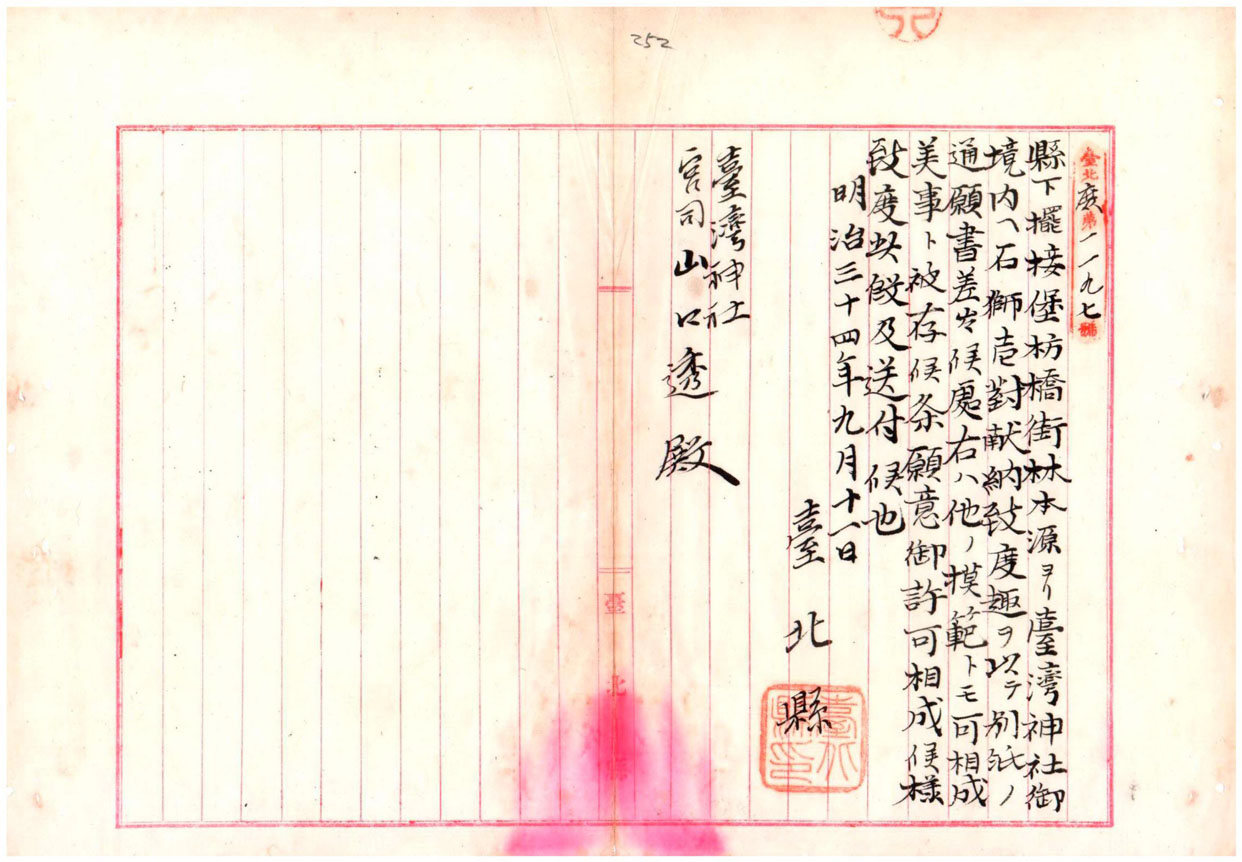 252
臺北庶第一一九七號
縣下擺接堡枋橋街林本源ヨリ臺灣神社御
境内ヘ石獅壱對献納致度趣ヲ以テ別紙ノ
通願書差出候處右ハ他ノ模範トモ可相成
美事ト被存候条願意御許可相成候様
致度此段及送付候也
明治三十四年九月十一日
臺北縣
臺灣神社
宮司山口透殿
臺北縣
臺北縣印